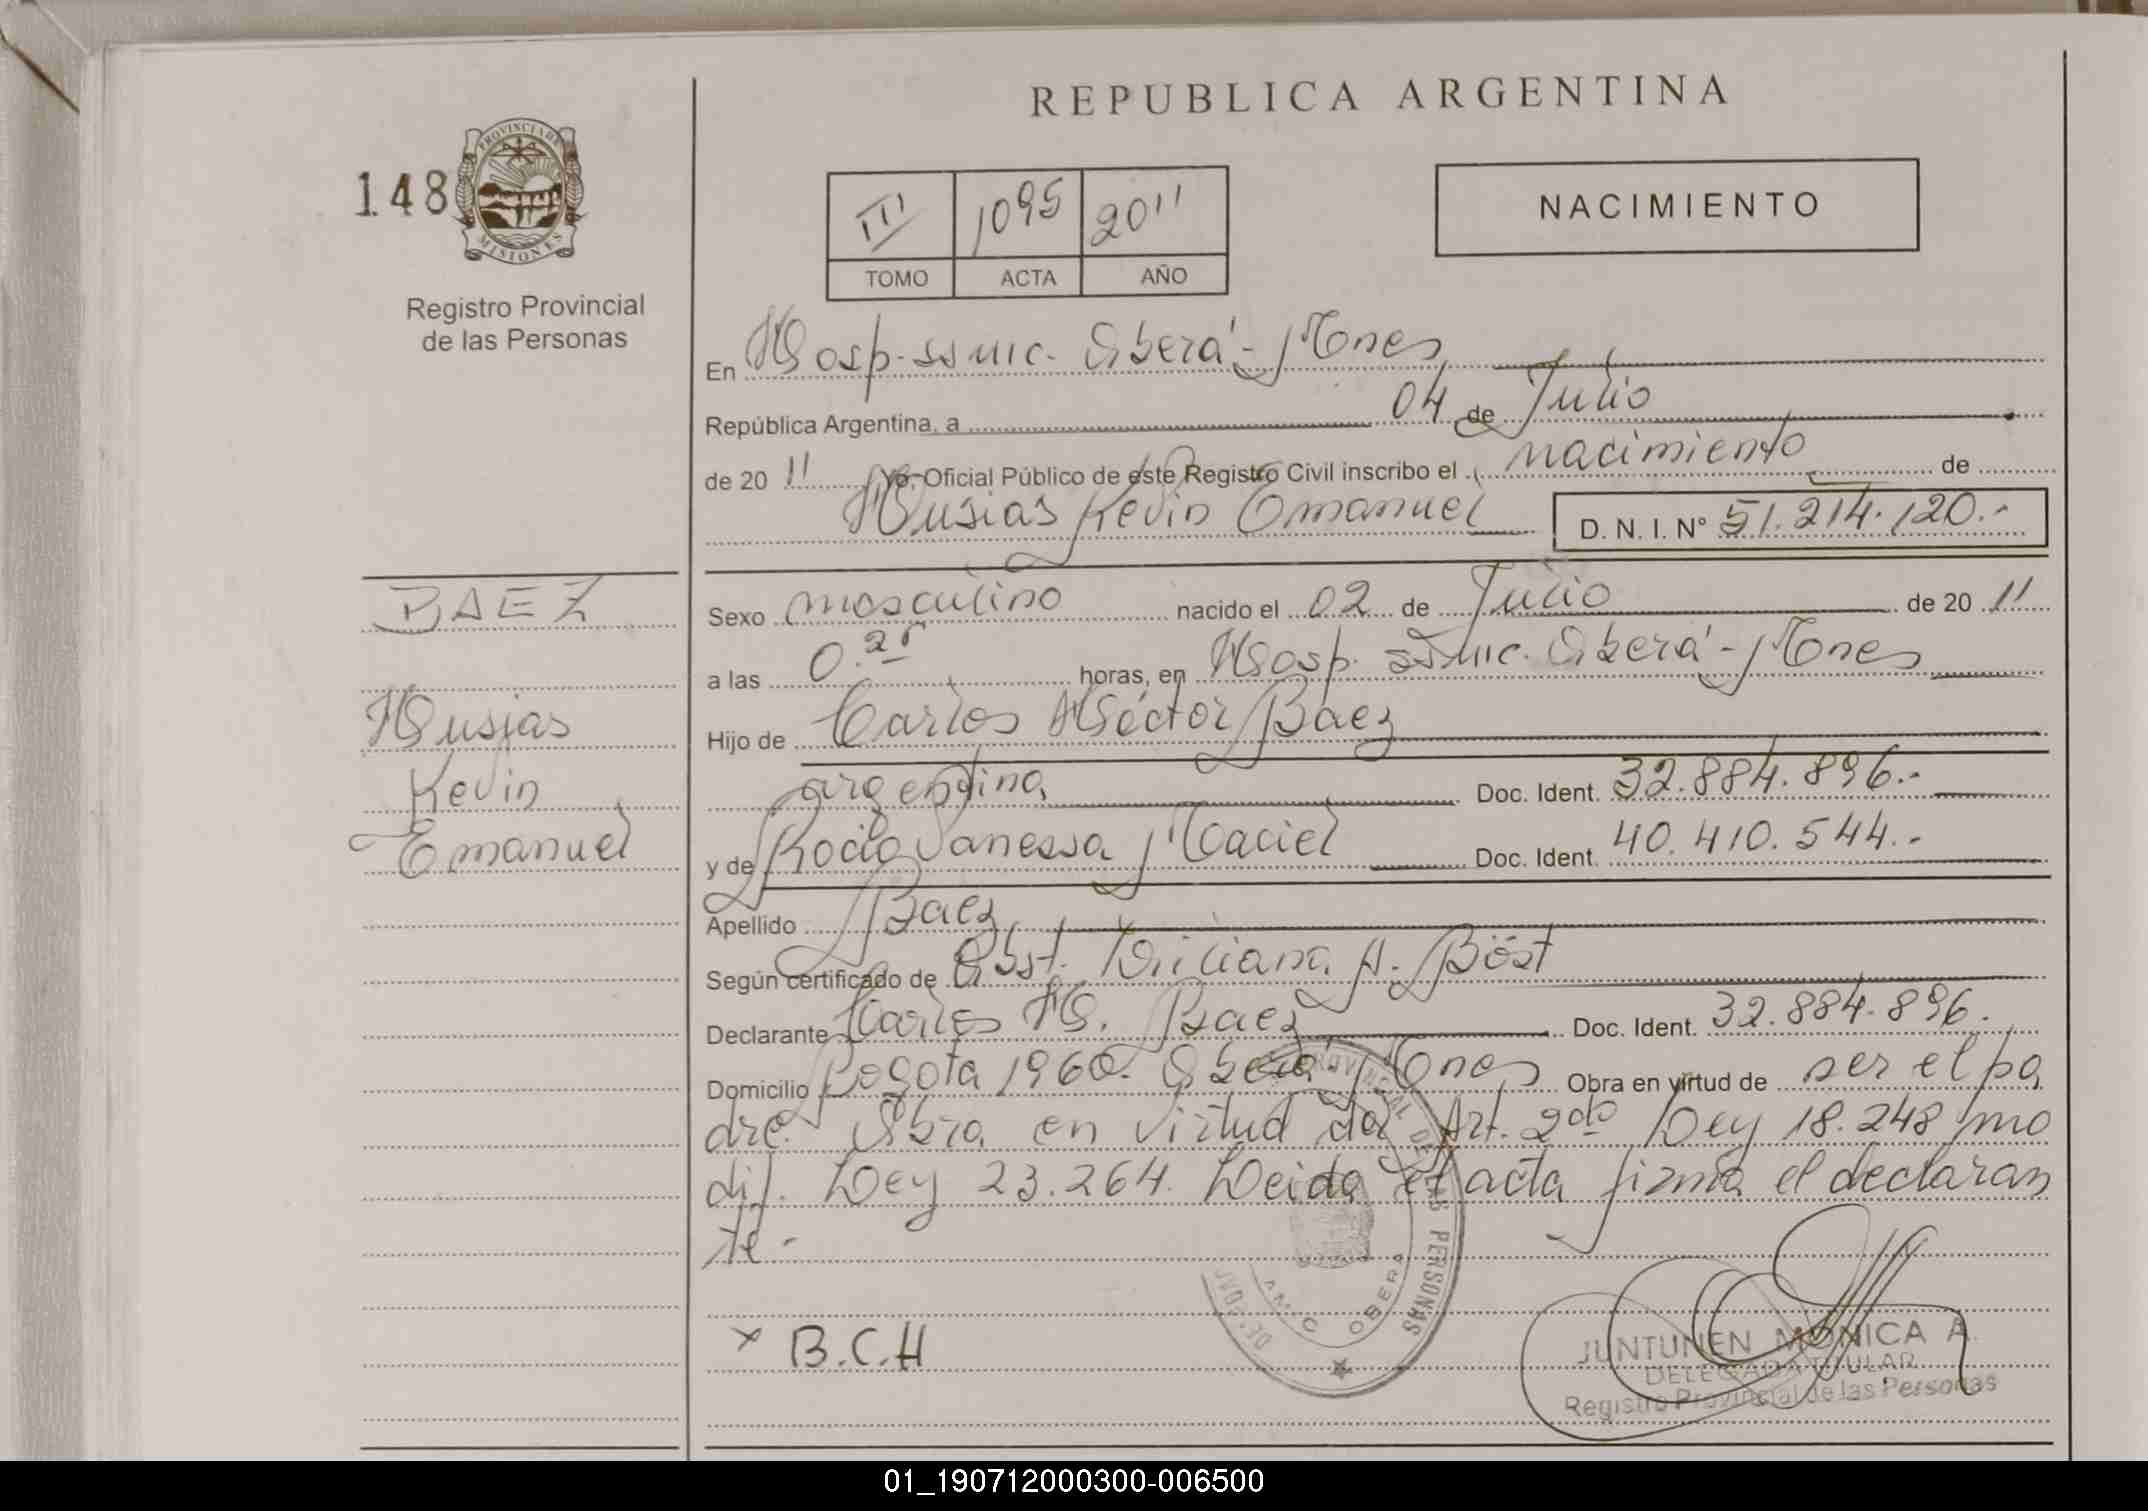 REPUBLICA ARGENTINA
148
PROVINCIA DE
MISIONES
Registro Provincial
de las Personas
III 1095 2011
TOMO ACTA AÑO
NACIMIENTO
En Hosp. SS MIC. Oberá - Mnes
República Argentina, a 04 de Julio
de 20 11 Yo, Oficial Público de este Registro Civil inscribo el nacimiento de
Husias Kevin Emanuel D. N. I. N° 51.214.120.-
Sexo masculino nacido el 02 de Julio de 20 11
a las horas, en Hosp. SS MIC. Oberá - Mnes
Hijo de Carlos Héctor Báez
argentina Doc. Ident. 32.884.896.-
y de Rocío Vanessa Maciel Doc. Ident. 40.410.544.-
Apellido Báez
Según certificado de Obst. Liliana A. Böst
Declarante Carlos H. Baez Doc. Ident. 32.884.896.
Domicilio Bogota 1960. Oberá - Mnes Obra en virtud de ser el pa
dre. Obra en virtud del Art. 2do Ley 18.248 mo
dif. Ley 23.264. Leida el acta firma el declaran
te.-
BAEZ
Husias
Kevin
Emanuel
x B.C.H
PROVINCIAL DE LAS PERSONAS
OBERA
JUNTUNEN MONICA A.
DELEGADA TITULAR
Registro Provincial de las Personas
01_190712000300-006500